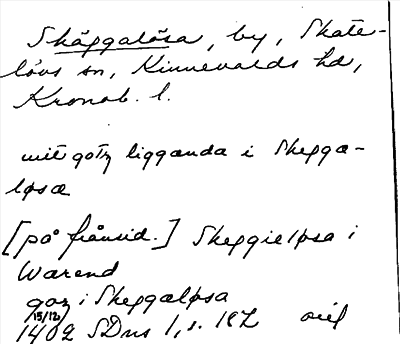 Skäggalösa, by, Skate-
lövs sn, Kinnevalds hd,
Kronob. l.
mit gotz ligganda i Skegga-
løsa
[på frånsid.] Skeggieløsa i
Warend
goz i Skeggaløsa
15/12
1402 SDns 1, s. 182 orig